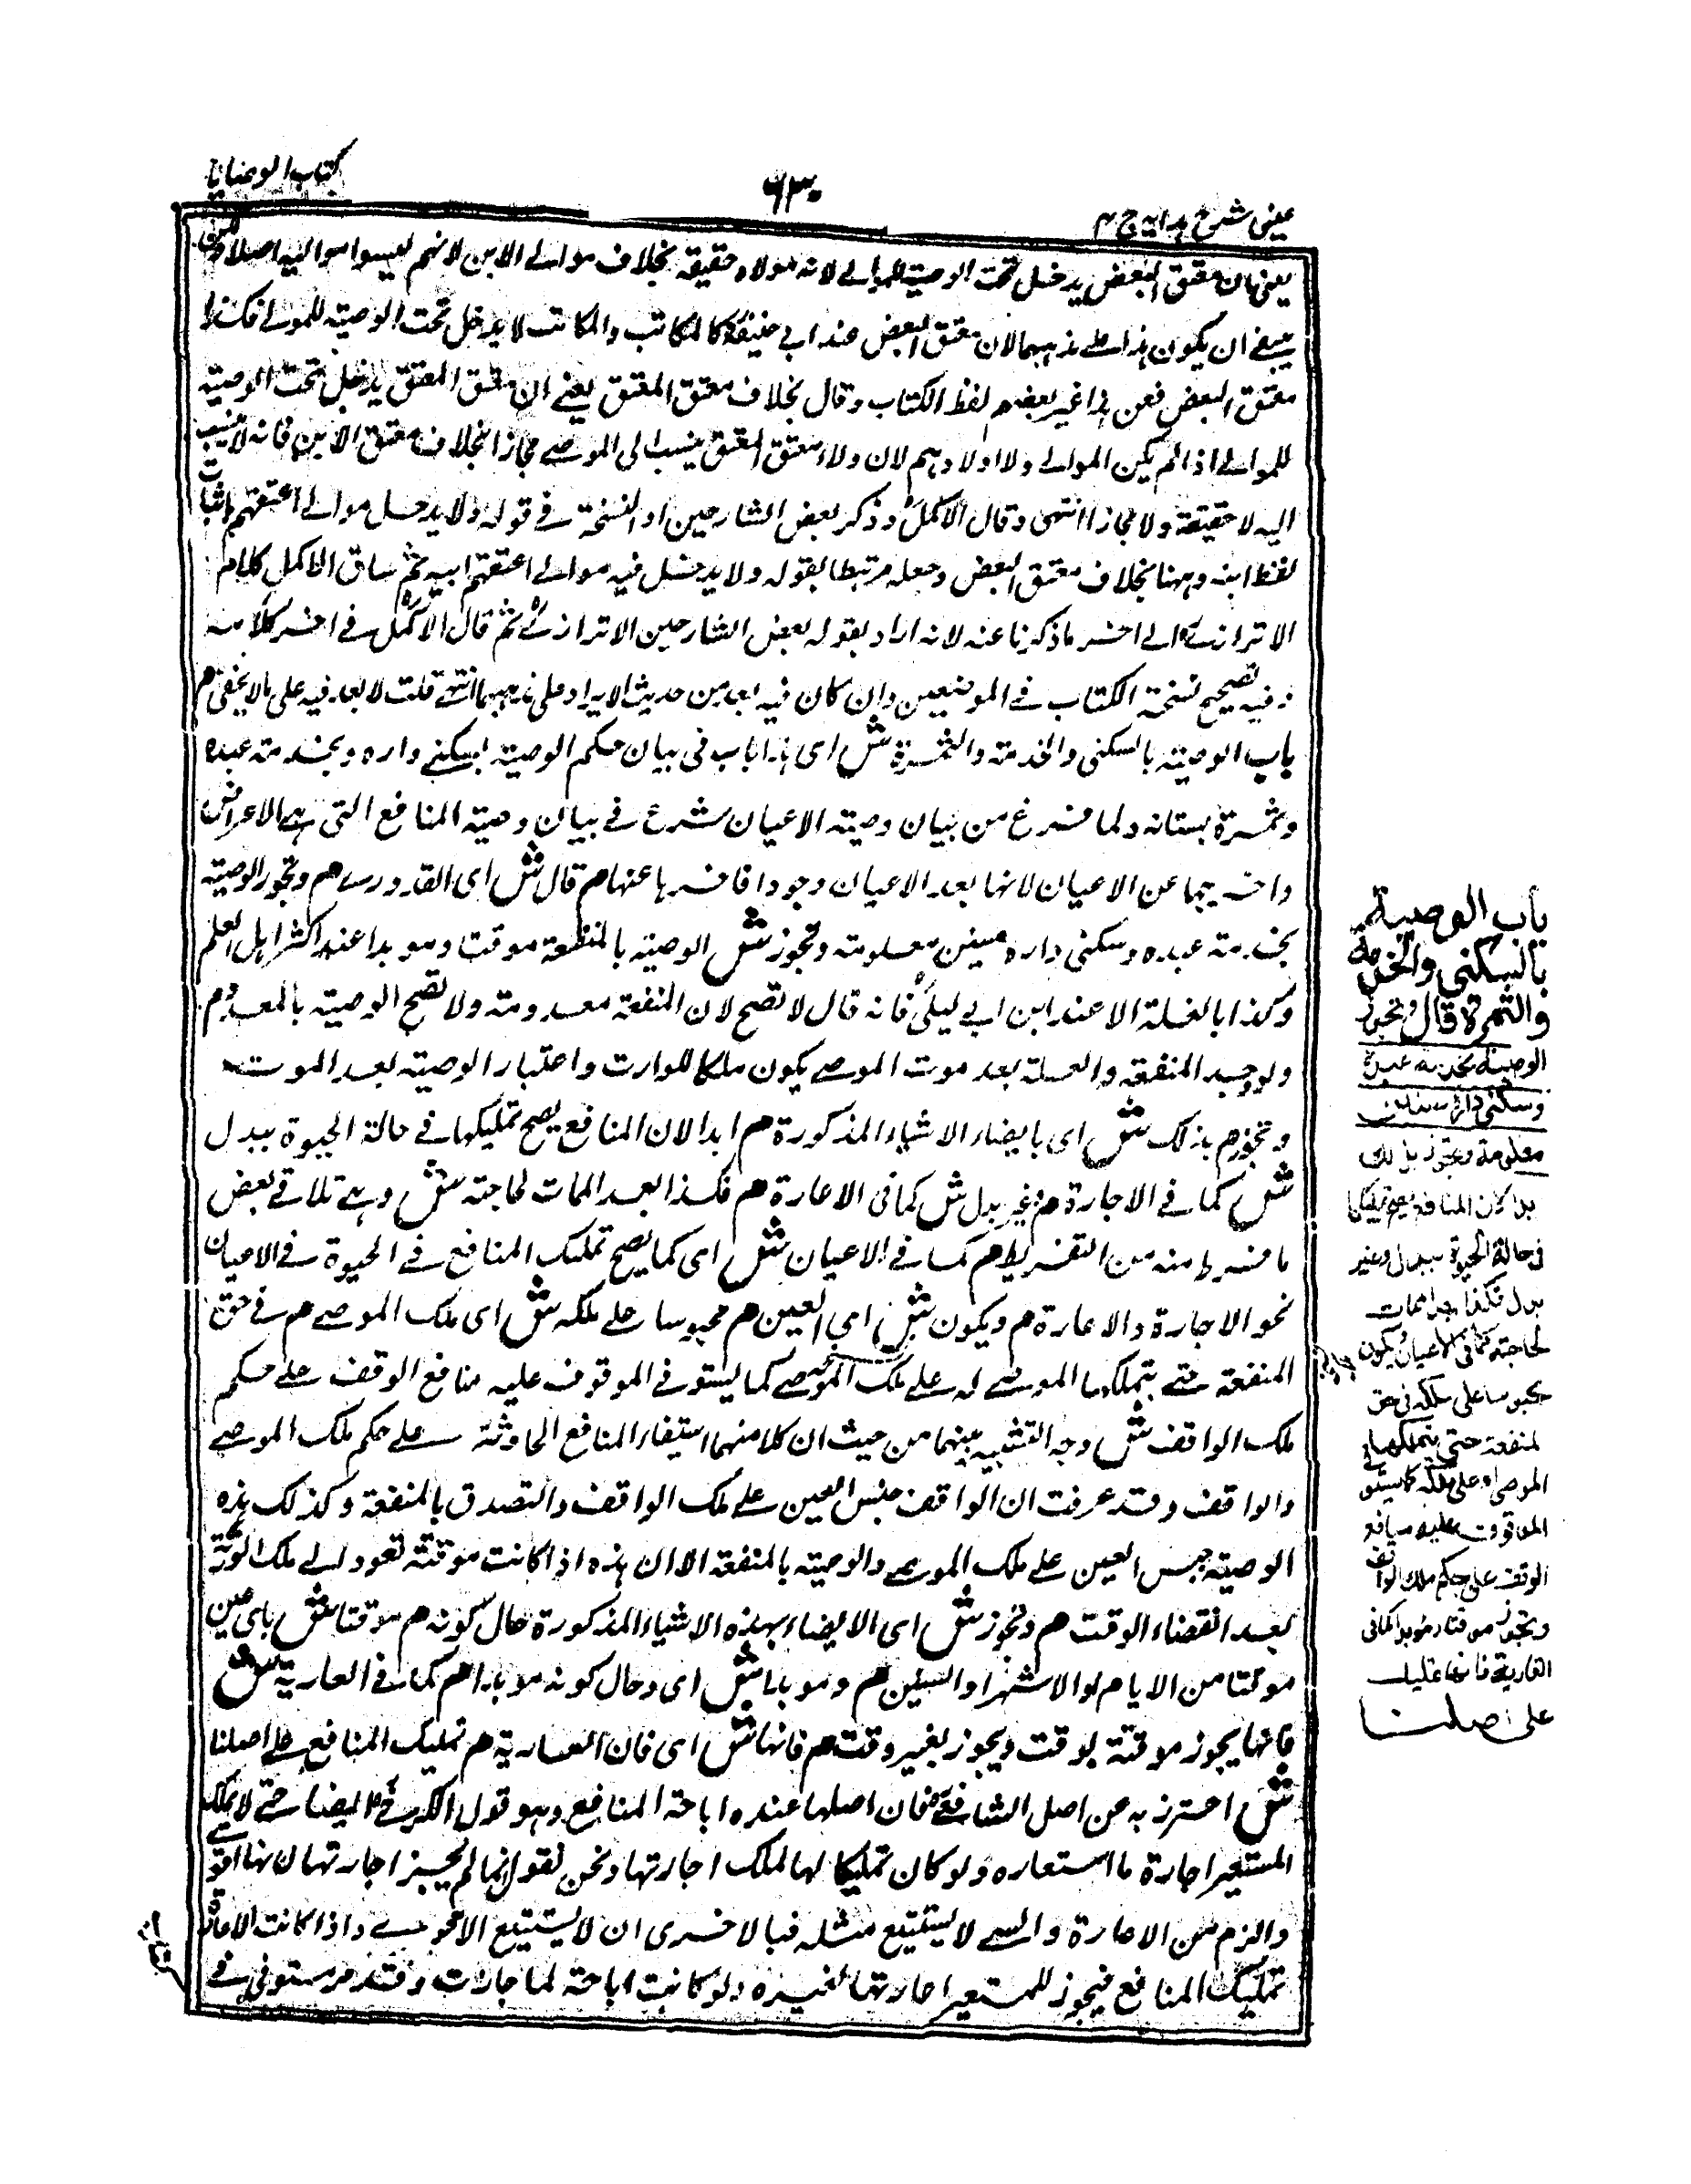 عینی شرح هدایه ج ۴
۶۳۰
کتاب الوصایا
یعنی ان معتق البعض یدخل تحت الوصیة للموالی لانه مولاه حقیقة بخلاف موالی الابن لانهم لیسوا موالیه اصلا
ینبغی ان یکون هذا علی مذهبهما لان معتق البعض عند ابی حنیفة کالمکاتب والمکاتب لا یدخل تحت الوصیة للموالی فکذا
معتق البعض فعن هذا غیر بعضهم لفظ الکتاب وقال بخلاف معتق المعتق یعنی ان معتق المعتق یدخل تحت الوصیة
للموالی اذا لم یکن الموالی ولا اولادهم لان ولاء معتق المعتق ینسب الی الموصی مجازا بخلاف معتق الابن فانه لا ینسب
الیه لا حقیقة ولا مجازا انتهی وقال الاکمل وذکر بعض الشارحین ان النسخة فی قوله ولا یدخل موالی اعتقهم باثبات
لفظ ابنه وههنا بخلاف معتق البعض وجعله مرتبطا بقوله ولا یدخل فیه موالی اعتقهم ابیه ثم ساق الاکمل کلام
الاترازی الی اخر ما ذکرنا عنه لانه اراد بقوله بعض الشارحین الاترازی ثم قال الاکمل فی اخر کلامه
وفیه تصحیح نسخة الکتاب فی الموضعین وان کان فیه بعد من حدیث الایراد علی مذهبهما انتهی قلت لا بعد فیه علی ما لا یخفی م
باب الوصیة بالسکنی والخدمة والثمرة ش ای هذا باب فی بیان حکم الوصیة بسکنی داره وبخدمة عبده
وثمرة بستانه ولما فرغ من بیان وصیة الاعیان شرع فی بیان وصیة المنافع التی هی الاعراض
واخرها عن الاعیان لانها بعد الاعیان وجودا فاخرها عنها م قال ش ای القدوری م وتجوز الوصیة
بخدمة عبده وسکنی داره سنین معلومة وتجوز ش الوصیة بالمنفعة موقتا وموبدا عند اکثر اهل العلم
وکذا بالغلة الا عند ابن ابی لیلی فانه قال لا تصح لان المنفعة معدومة ولا تصح الوصیة بالمعدوم
ولو وجد المنفعة والغلة بعد موت الموصی یکون ملکا للوارث واعتبار الوصیة بعد الموت
وتجوز م بذلک ش ای بایصاء الاشیاء المذکورة م ابدا لان المنافع یصح تملیکها فی حالة الحیوة ببدل
ش کما فی الاجارة م وغیر بدل ش کما فی الاعارة م فکذا بعد الممات لحاجته ش وهی تلافی بعض
ما فرط منه من التفریط م کما فی الاعیان ش ای کما یصح تملیک المنافع فی الحیوة فی الاعیان
نحو الاجارة والاعارة م ویکون ش ای العین م محبوسا علی ملکه ش ای ملک الموصی م فی حق
المنفعة حتی یتملکها الموصی له علی ملک الموصی کما یستوفی الموقوف علیه منافع الوقف علی حکم
ملک الواقف ش وجه التشبیه بینهما من حیث ان کلا منهما استیفاء المنافع الحادثة علی حکم ملک الموصی
والواقف وقد عرفت ان الواقف حبس العین علی ملک الواقف والتصدق بالمنفعة وکذلک هذه
الوصیة حبس العین علی ملک الموصی والوصیة بالمنفعة الا ان هذه اذا کانت موقتة تعود الی ملک الورثة
بعد انقضاء الوقت م وتجوز ش ای الایصاء بهذه الاشیاء المذکورة حال کونه م موقتا ش بای حین
موقتا من الایام او الاشهر او السنین م وموبدا ش ای وحال کونه موبدا م کما فی العاریة ش
فانها یجوز موقتة بوقت ویجوز بغیر وقت م فانها ش ای فان العاریة م تملیک المنافع علی اصلنا
ش احترز به عن اصل الشافعی فان اصلها عنده اباحة المنافع وهو قول الکرخی ایضا حتی لا یملک
المستعیر اجارة ما استعاره ولو کان تملیکا لها لملک اجارتها ونحن نقول انما لم یجز اجارتها لانها اقوی
والزم من الاعارة والشی لا یستتبع مثله فبالاحری ان لا یستتبع الاقوی واذا کانت الاعارة
تملیک المنافع فیجوز للمستعیر اعارتها لغیره ولو کانت اباحة لما جازت وقد مر مستوفی فی
باب الوصیة
بالسکنی والخدمة
والثمرة قال وتجوز
الوصیة بخدمة عبده
وسکنی داره سنین
معلومة وتجوز بذلک
ابدا لان المنافع یصح تملیکها
فی حالة الحیوة ببدل وغیر
بدل فکذا بعد الممات
لحاجته کما فی الاعیان ویکون
محبوسا علی ملکه فی حق
المنفعة حتی یتملکها
الموصی له علی ملکه کما یستوفی
الموقوف علیه منافع
الوقف علی حکم ملک الواقف
وتجوز موقتا وموبدا کما فی
العاریة فانها تملیک
علی اصلنا